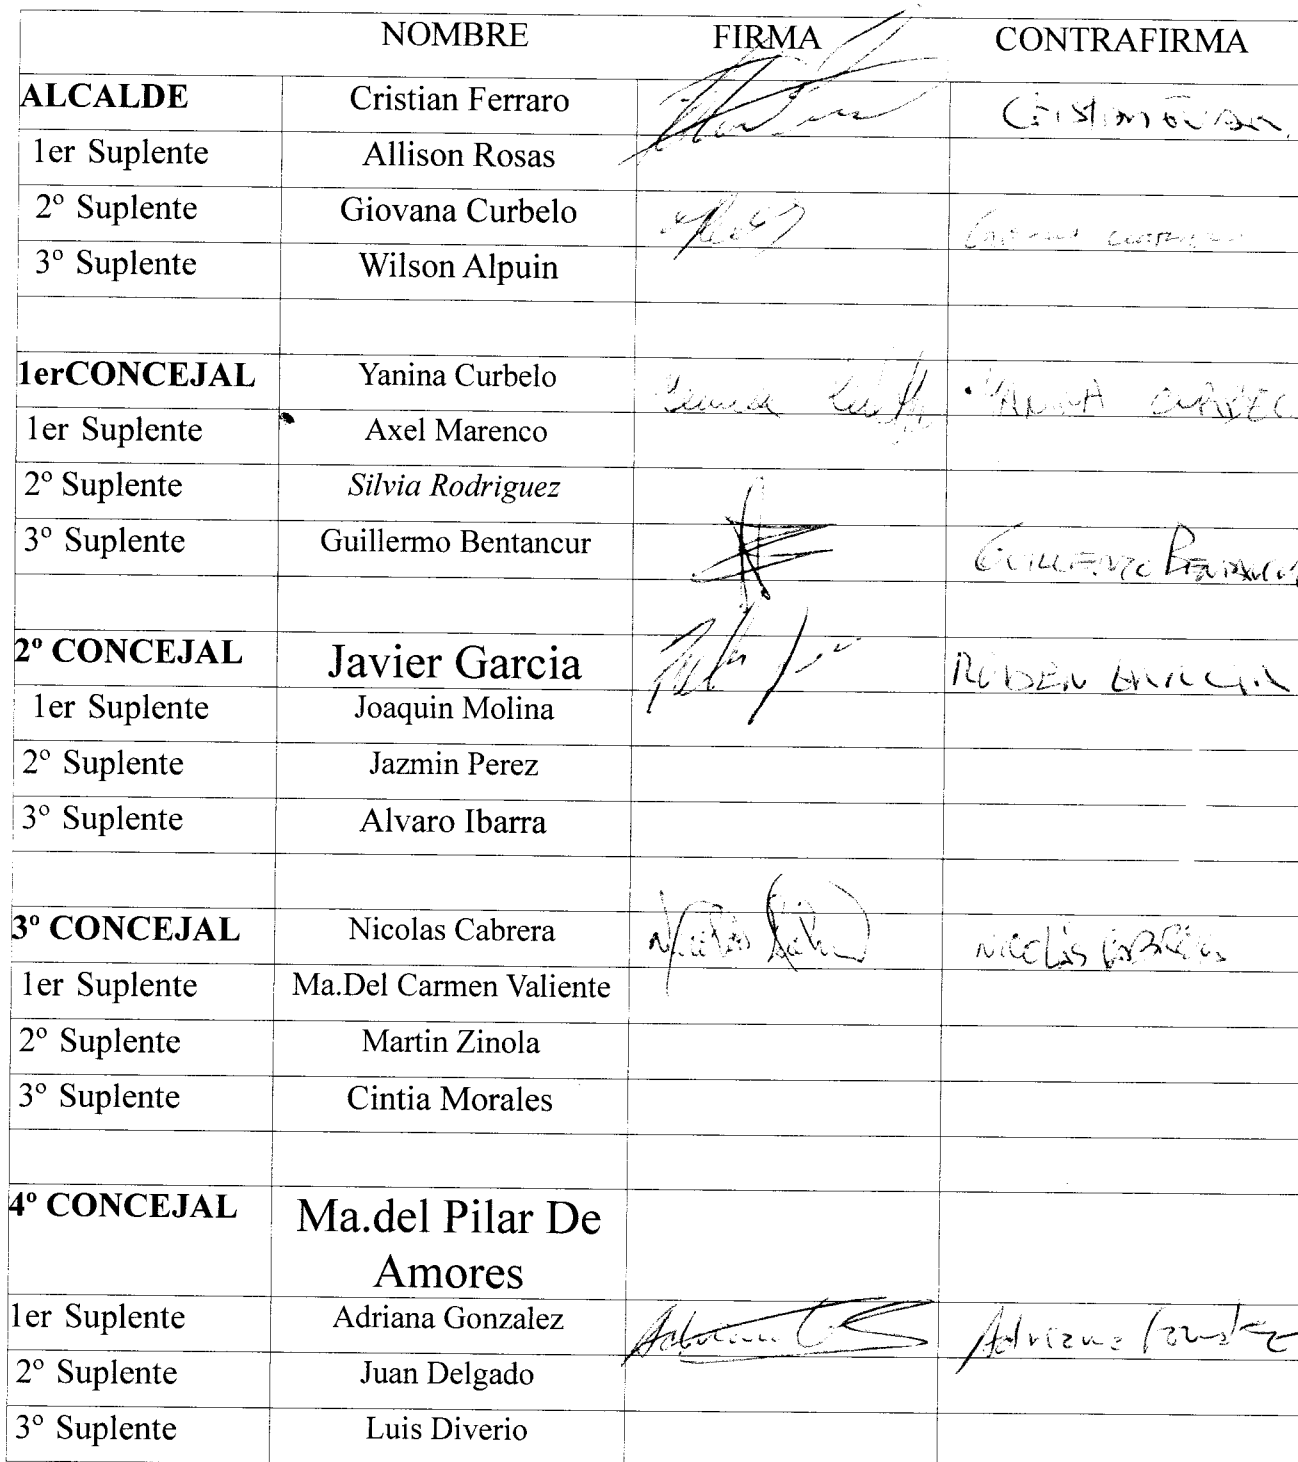 NOMBRE FIRMA CONTRAFIRMA
ALCALDE Cristian Ferraro
1er Suplente Allison Rosas
2º Suplente Giovana Curbelo
3º Suplente Wilson Alpuin
1erCONCEJAL Yanina Curbelo
1er Suplente Axel Marenco
2º Suplente Silvia Rodriguez
3º Suplente Guillermo Bentancur GUILLERMO
2º CONCEJAL Javier Garcia RUBEN GARCIA
1er Suplente Joaquin Molina
2º Suplente Jazmin Perez
3º Suplente Alvaro Ibarra
3º CONCEJAL Nicolas Cabrera NICOLÁS CABRERA
1er Suplente Ma.Del Carmen Valiente
2º Suplente Martin Zinola
3º Suplente Cintia Morales
4º CONCEJAL Ma.del Pilar De
Amores
1er Suplente Adriana Gonzalez Adriana Gonzalez
2º Suplente Juan Delgado
3º Suplente Luis Diverio